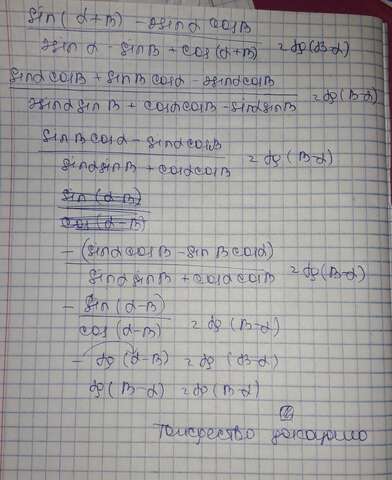 sin(α+β) - 2sinα cosβ
2sinα - sinβ + cos(α+β) = tg(β-α)
sinα cosβ + sinβ cosα - 2sinα cosβ
2sinα sinβ + cosα cosβ - sinα sinβ = tg(β-α)
sinβ cosα - sinα cosβ
sinα sinβ + cosα cosβ = tg(β-α)
sin(α-β)
cos(α-β)
-(sinα cosβ - sinβ cosα)
sinα sinβ + cosα cosβ = tg(β-α)
- sin(α-β)
cos(α-β) = tg(β-α)
- tg(α-β) = tg(β-α)
tg(β-α) = tg(β-α)
Тождество доказано